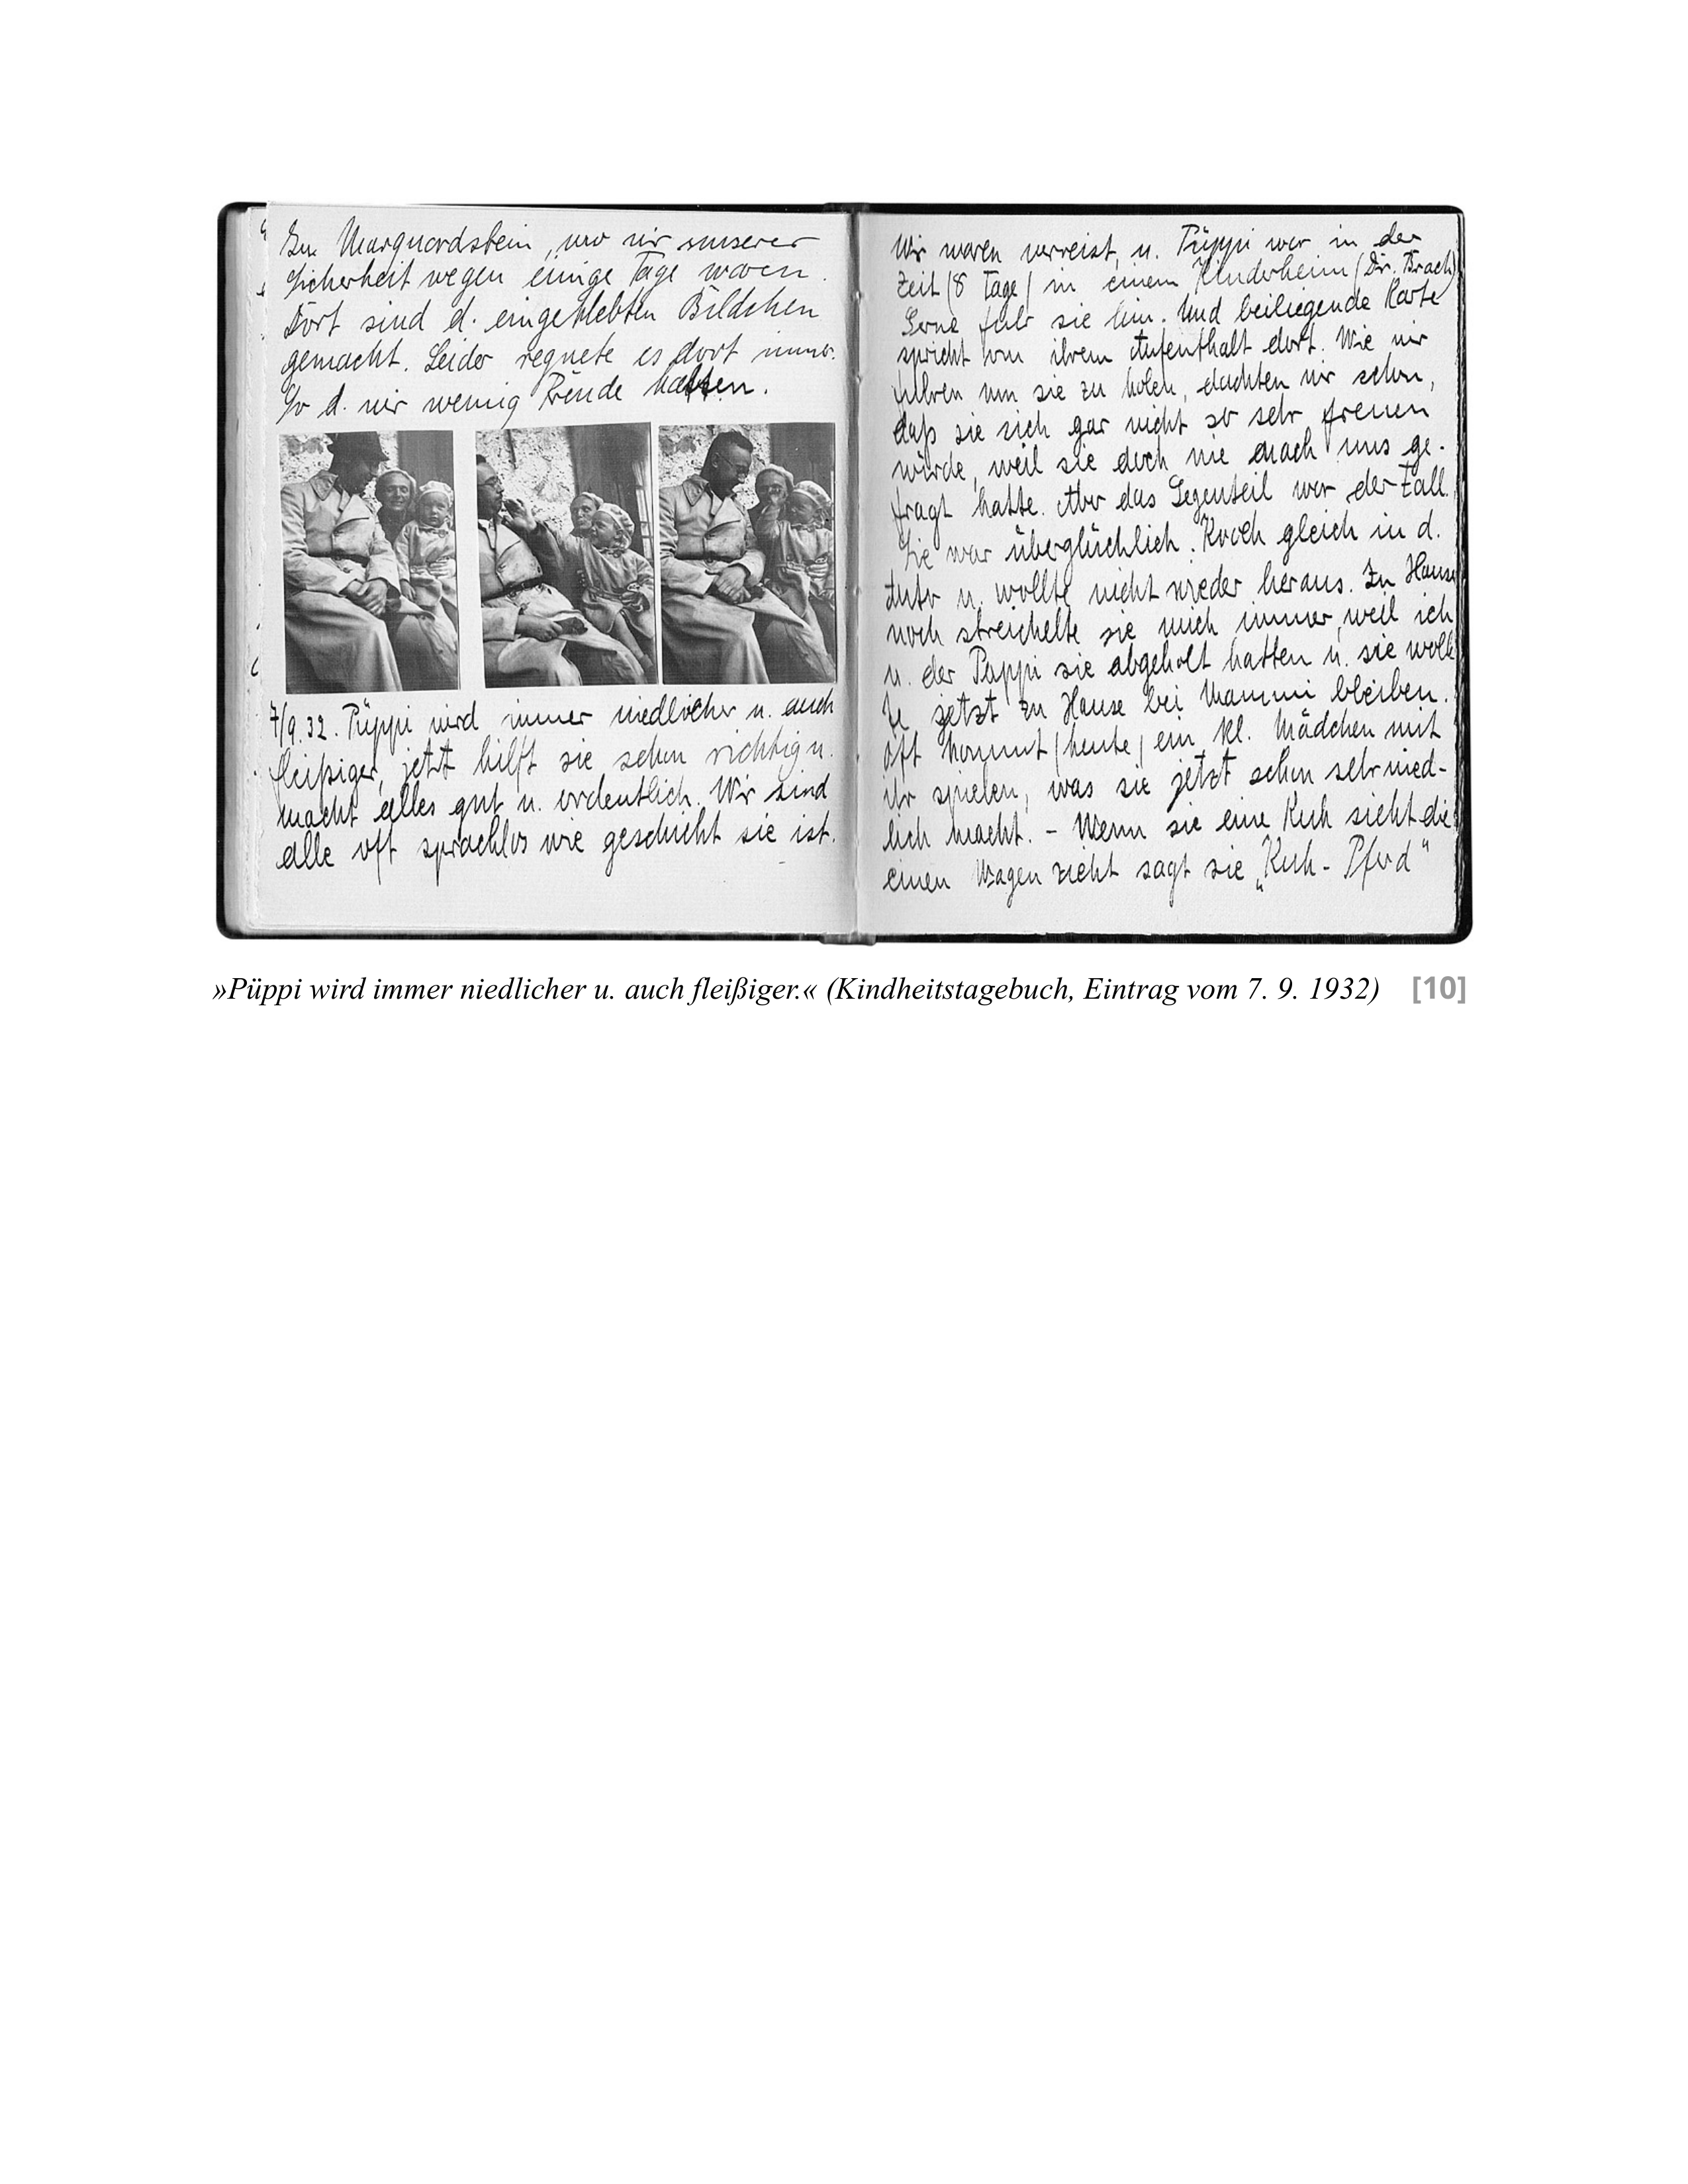 In Marquardstein, wo wir unserer
Sicherheit wegen einige Tage waren.
Dort sind d. eingeklebten Bildchen
gemacht. Leider regnete es dort immer.
So d. wir wenig Freude hatten.
7/9.32. Püppi wird immer niedlicher u. auch
fleißiger, jetzt hilft sie schon richtig u.
macht alles gut u. ordentlich. Wir sind
alle oft sprachlos wie geschickt sie ist.
Wir waren verreist, u. Püppi war in der
Zeit (8 Tage) in einem Kinderheim (Dr. Brach)
Gerne fuhr sie hin. Und beiliegende Karte
spricht von ihrem Aufenthalt dort. Wie wir
fuhren um sie zu holen, dachten wir schon,
daß sie sich gar nicht so sehr freuen
würde, weil sie doch nie nach uns ge-
fragt hatte. Aber das Gegenteil war der Fall.
Sie war überglücklich. Kroch gleich in d.
Auto u. wollte nicht wieder heraus. Zu Hause
noch streichelte sie mich immer, weil ich
u. der Pappi sie abgeholt hatten u. sie wollte
jetzt zu Hause bei Mammi bleiben.
Oft kommt (heute) ein kl. Mädchen mit
ihr spielen, was sie jetzt schon sehr nied-
lich macht. - Wenn sie eine Kuh sieht die
einen Wagen zieht sagt sie „Kuh - Pferd"
»Püppi wird immer niedlicher u. auch fleißiger.« (Kindheitstagebuch, Eintrag vom 7. 9. 1932) [10]